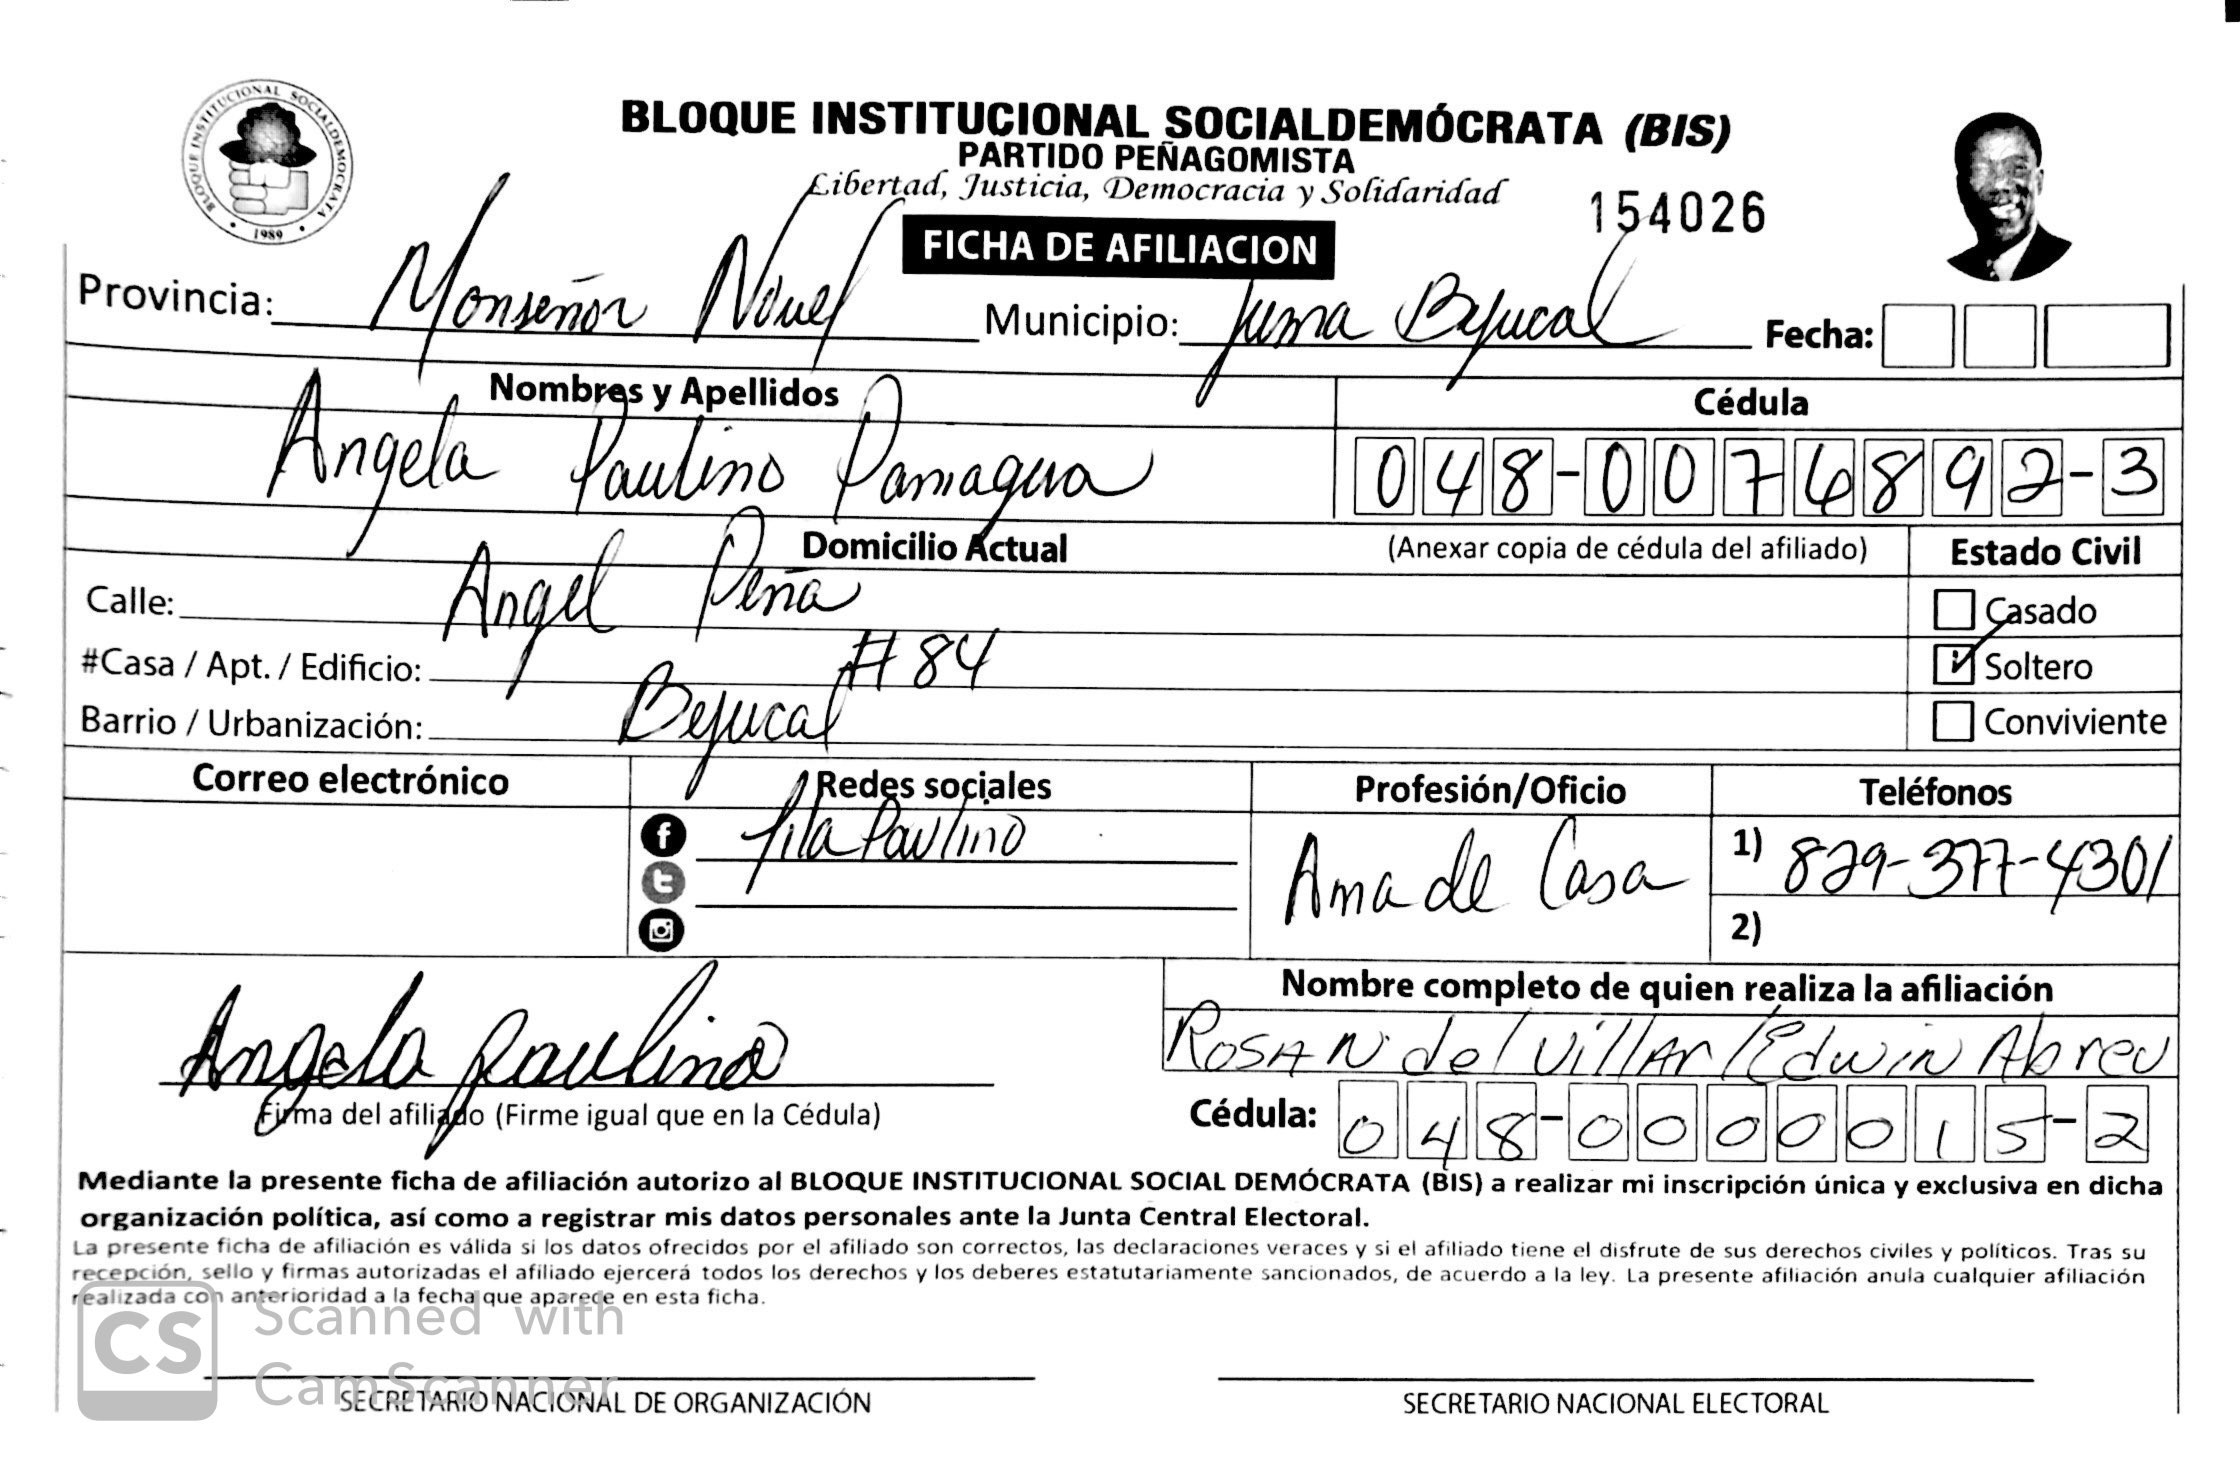 BLOQUE INSTITUCIONAL SOCIALDEMOCRATA
1989
BLOQUE INSTITUCIONAL SOCIALDEMÓCRATA (BIS)
PARTIDO PEÑAGOMISTA
Libertad, Justicia, Democracia y Solidaridad
154026
FICHA DE AFILIACION
Provincia: Monseñor Nouel Municipio: Juma Bejucal Fecha:
Nombres y Apellidos Cédula
Angela Paulino Paniagua 048-0076892-3
Domicilio Actual (Anexar copia de cédula del afiliado) Estado Civil
Calle: Angel Peña Casado
#Casa / Apt. / Edificio: #84 Soltero
Barrio / Urbanización: Bejucal Conviviente
Correo electrónico Redes sociales Profesión/Oficio Teléfonos
Paulino Ama de Casa 1) 829-377-4301
2)
Nombre completo de quien realiza la afiliación
Angela Paulino ROSAN del VillAr/Edwin Abreu
Firma del afiliado (Firme igual que en la Cédula) Cédula: 048-0000015-2
Mediante la presente ficha de afiliación autorizo al BLOQUE INSTITUCIONAL SOCIAL DEMÓCRATA (BIS) a realizar mi inscripción única y exclusiva en dicha
organización política, así como a registrar mis datos personales ante la Junta Central Electoral.
La presente ficha de afiliación es válida si los datos ofrecidos por el afiliado son correctos, las declaraciones veraces y si el afiliado tiene el disfrute de sus derechos civiles y políticos. Tras su
recepción, sello y firmas autorizadas el afiliado ejercerá todos los derechos y los deberes estatutariamente sancionados, de acuerdo a la ley. La presente afiliación anula cualquier afiliación
realizada con anterioridad a la fecha que aparece en esta ficha.
CS Scanned with
CamScanner
SECRETARIO NACIONAL DE ORGANIZACIÓN SECRETARIO NACIONAL ELECTORAL